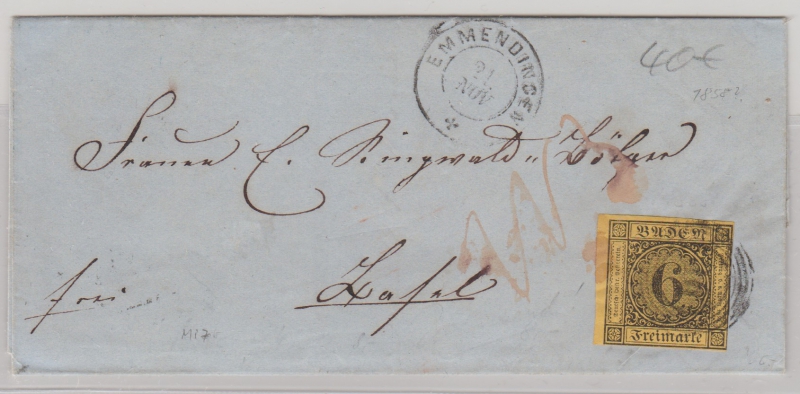 EMMENDINGEN
21
NOV
40€
1858?
Frauen E. Ringwald u Bölger
BADEN
6
Freimarke
frei
Basel
M17